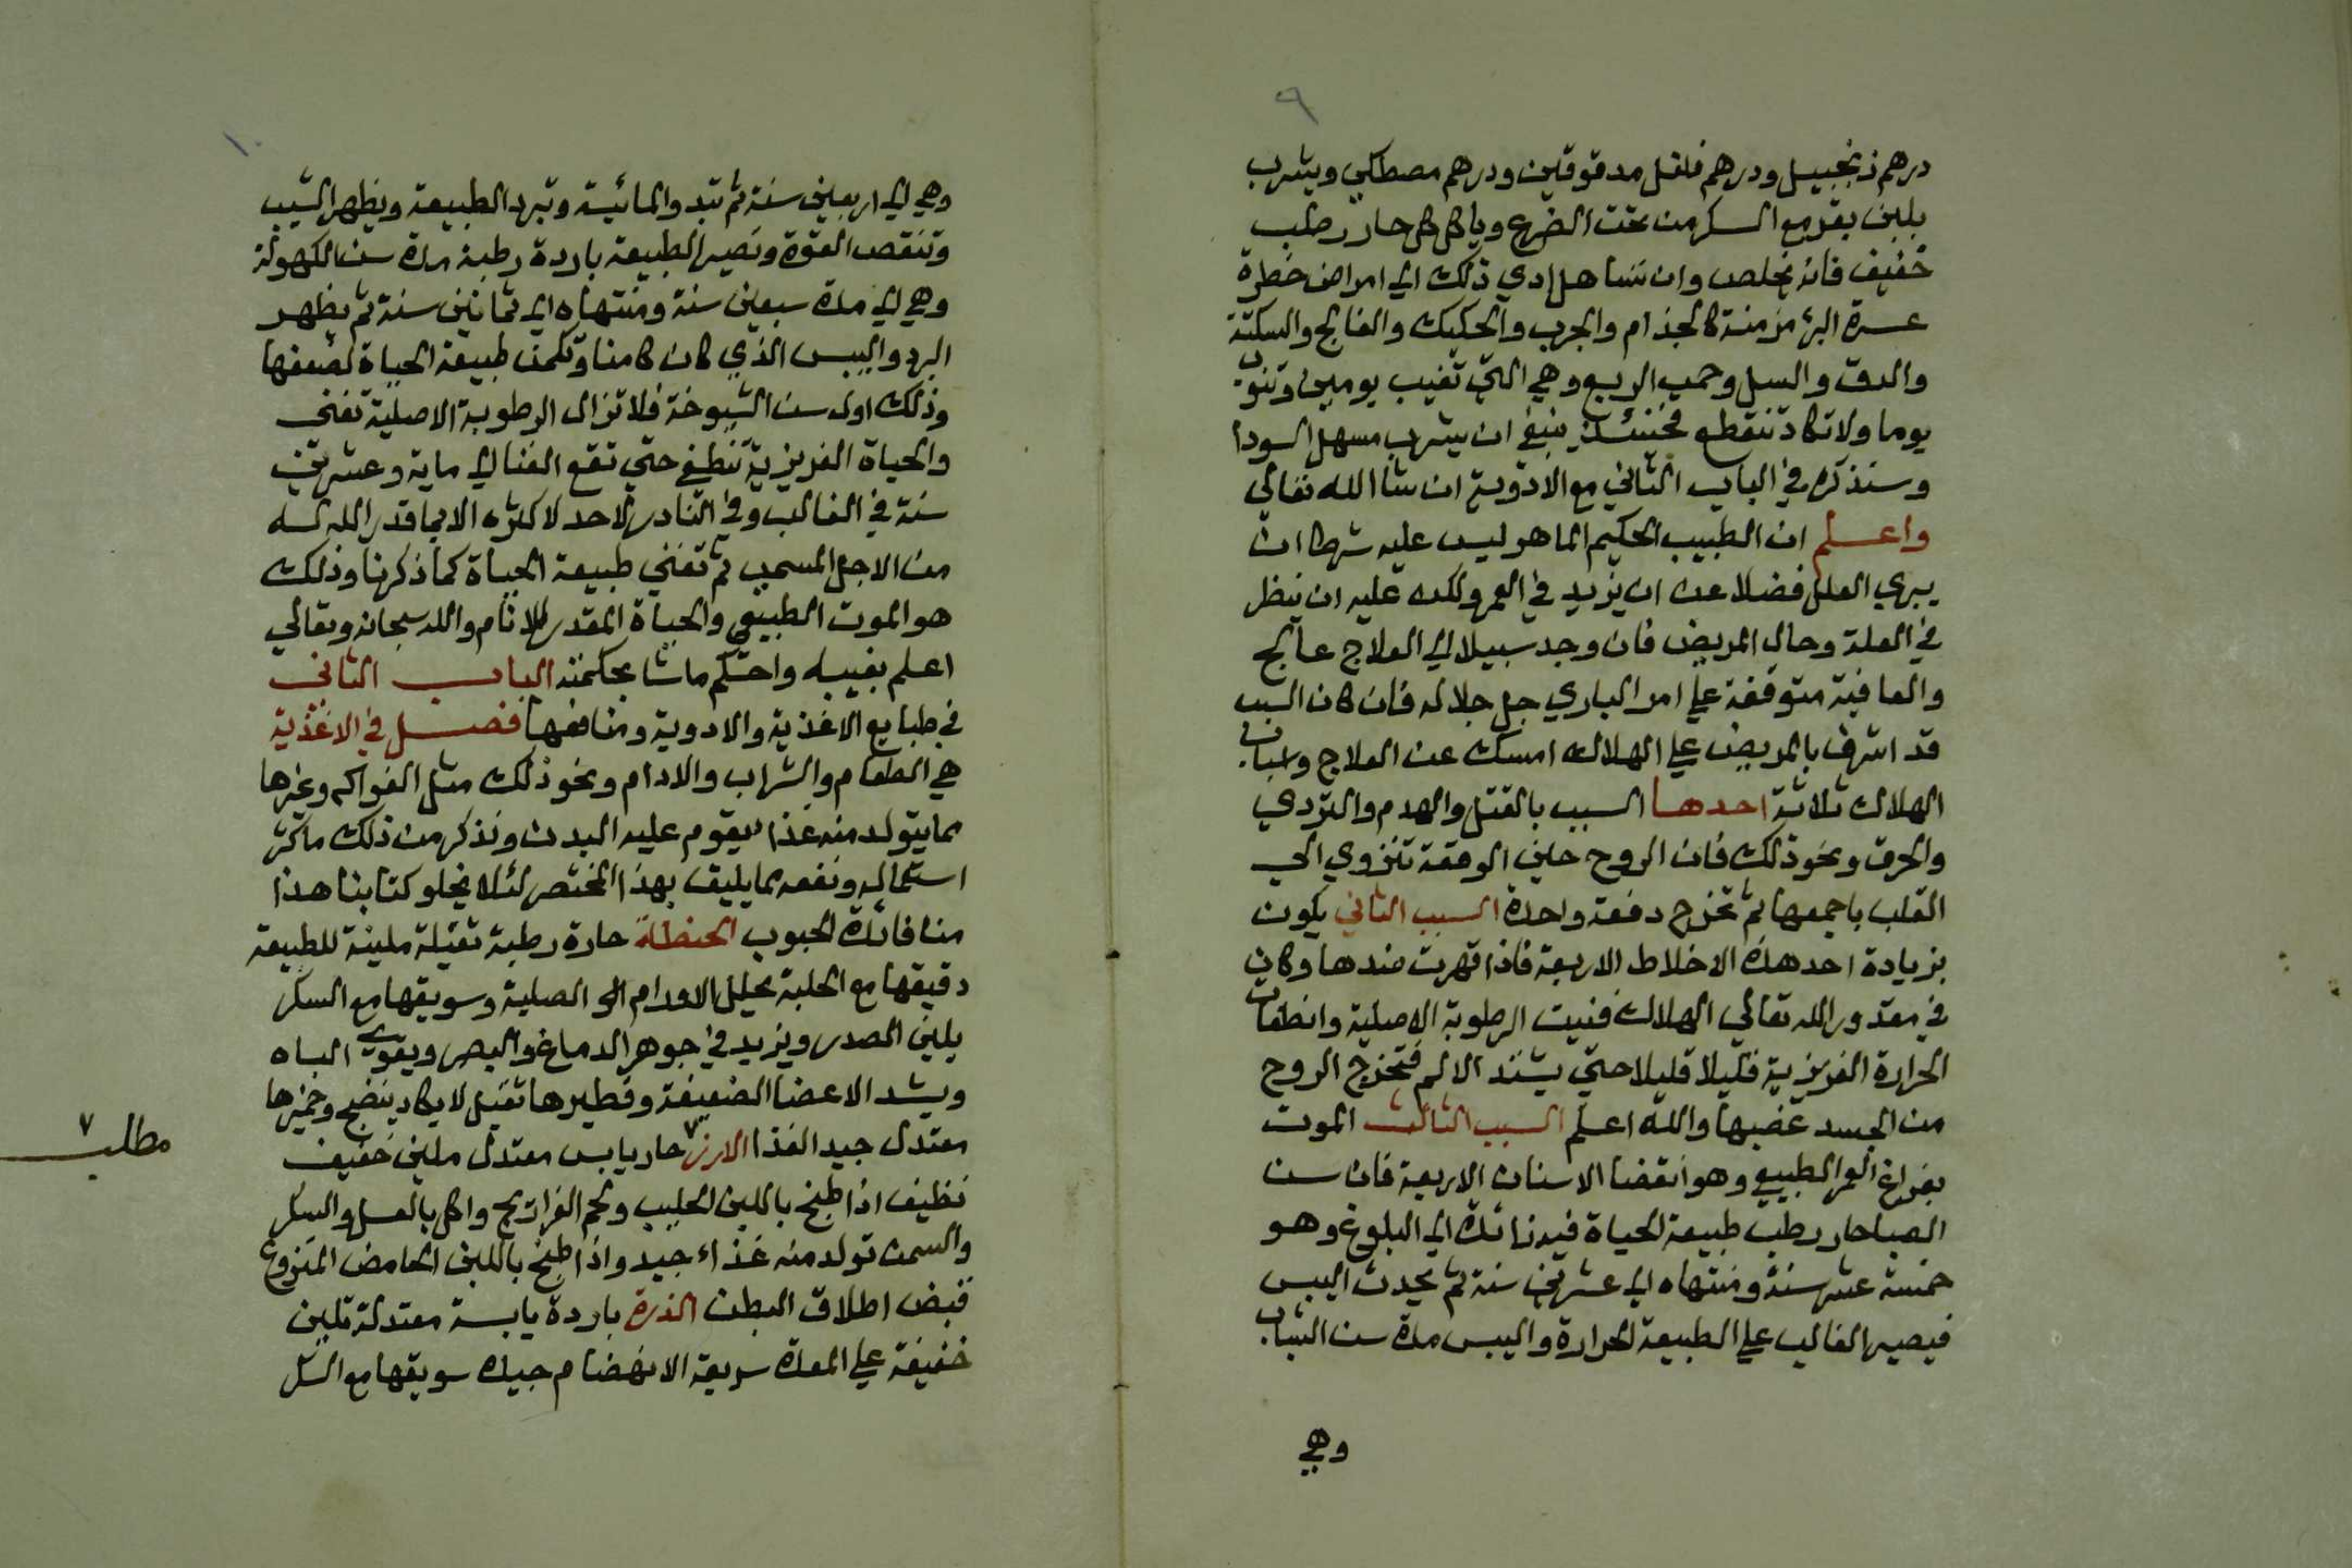 ٩
درهم زنجبيل ودرهم فلفل مدقوقين ودرهم مصطكي ويشرب
بلبن بقر مع السكر من تحت الضرع وياكل كل حار رطب
خفيف فانه يخلص وان تساهل ادي ذلك الي امراض خطرة
عسرة البرء مزمنة كالجذام والجرب والحكيك والفالج والسكتة
والدق والسل وحمي الربع وهي التي تغيب يومين وتنوب
يوما ولا تكاد تنقطع فحينئذ ينبغي ان يشرب مسهل السودا
وسنذكره في الباب الثاني مع الادوية ان شا الله تعالي
واعلم ان الطبيب الحكيم الماهر ليس عليه شرطا ان
يبري العلل فضلا عن ان يزيد في العمر ولكنه عليه ان ينظر
في العلة وحال المريض فان وجد سبيلا الي العلاج عالج
والعافية متوقفة علي امر الباري جل جلاله فان كان السبب
قد اشرف بالمريض علي الهلاك امسك عن العلاج واسباب
الهلاك ثلاثة احدها السبب بالقتل والهدم والتردي
والحرق ونحو ذلك فان الروح حين الوقعة تنزوي الي
القلب باجمعها ثم تخرج دفعة واحدة السبب الثاني يكون
بزيادة احد هذه الاخلاط الاربعة فاذا قهرت ضدها وكان
في مقدور الله تعالي الهلاك فنيت الرطوبة الاصلية وانطفات
الحرارة الغريزية قليلا قليلا حتي يشتد الالم فتخرج الروح
من الجسد غصبها والله اعلم السبب الثالث الموت
بفراغ العمر الطبيعي وهو انقضا الاسنان الاربعة فان سن
الصبا حار رطب طبيعة الحياة فيه زائدة الي البلوغ وهو
خمسة عشر سنة ومنتهاه الي عشرين سنة ثم يحدث اليبس
فيصير الغالب علي الطبيعة الحرارة واليبس مدة سن الشباب
وهي
١٠
وهي الي اربعين سنة ثم تبدو المائية وتبرد الطبيعة ويظهر الشيب
وتنقص القوة وتصير الطبيعة باردة رطبة مدة سن الكهولة
وهي الي مدة سبعين سنة ومنتهاه الي ثمانين سنة ثم يظهر
البرد واليبس الذي كان كامنا وتكمن طبيعة الحياة لضعفها
وذلك اول سن الشيوخة فلا تزال الرطوبة الاصلية تفنى
والحياة الغريزية تنطفي حتي تقع الفنا الي ماية وعشرين
سنة في الغالب وفي النادر لاحد لاكثره الا بما قدر الله له
من الاجل المسمي ثم تفني طبيعة الحياة كما ذكرنا وذلك
هو الموت الطبيعي والحياة المقدر للانام والله سبحانه وتعالي
اعلم بغيبه واحكم ماشا بحكمته الباب الثاني
في طبايع الاغذية والادوية ومنافعها فصل في الاغذية
هي الطعام والشراب والادام ونحو ذلك مثل الفواكه وغيرها
مما يتولد منه غذا يقوم عليه البدن ونذكر من ذلك ما كثر
استعماله ونفعه مما يليق بهذا المختصر لئلا يخلو كتابنا هذا
من فائدة الحبوب الحنطة حارة رطبة ثقيلة ملينة للطبيعة
دقيقها مع الحلبة يحلل الاورام الصلبة وسويقها مع السكر
يلين الصدر ويزيد في جوهر الدماغ والبصر ويقوي الباه
ويشد الاعضا الضعيفة وفطيرها ثقيل لا يكاد ينضج وخميرها
معتدل جيد الغذا الارز ٧ حار يابس معتدل ملين خفيف
مطلب ٧
نظيف اذا طبخ باللبن الحليب ولحم الفراريج واكل بالعسل والسكر
والسمن تولد منه غذاء جيد واذا طبخ باللبن الحامض المنزوع
قبض اطلاق البطن الذرة باردة يابسة معتدلة تلين
خفيفة علي المعدة سريعة الانهضام جيدة سويقها مع السكر